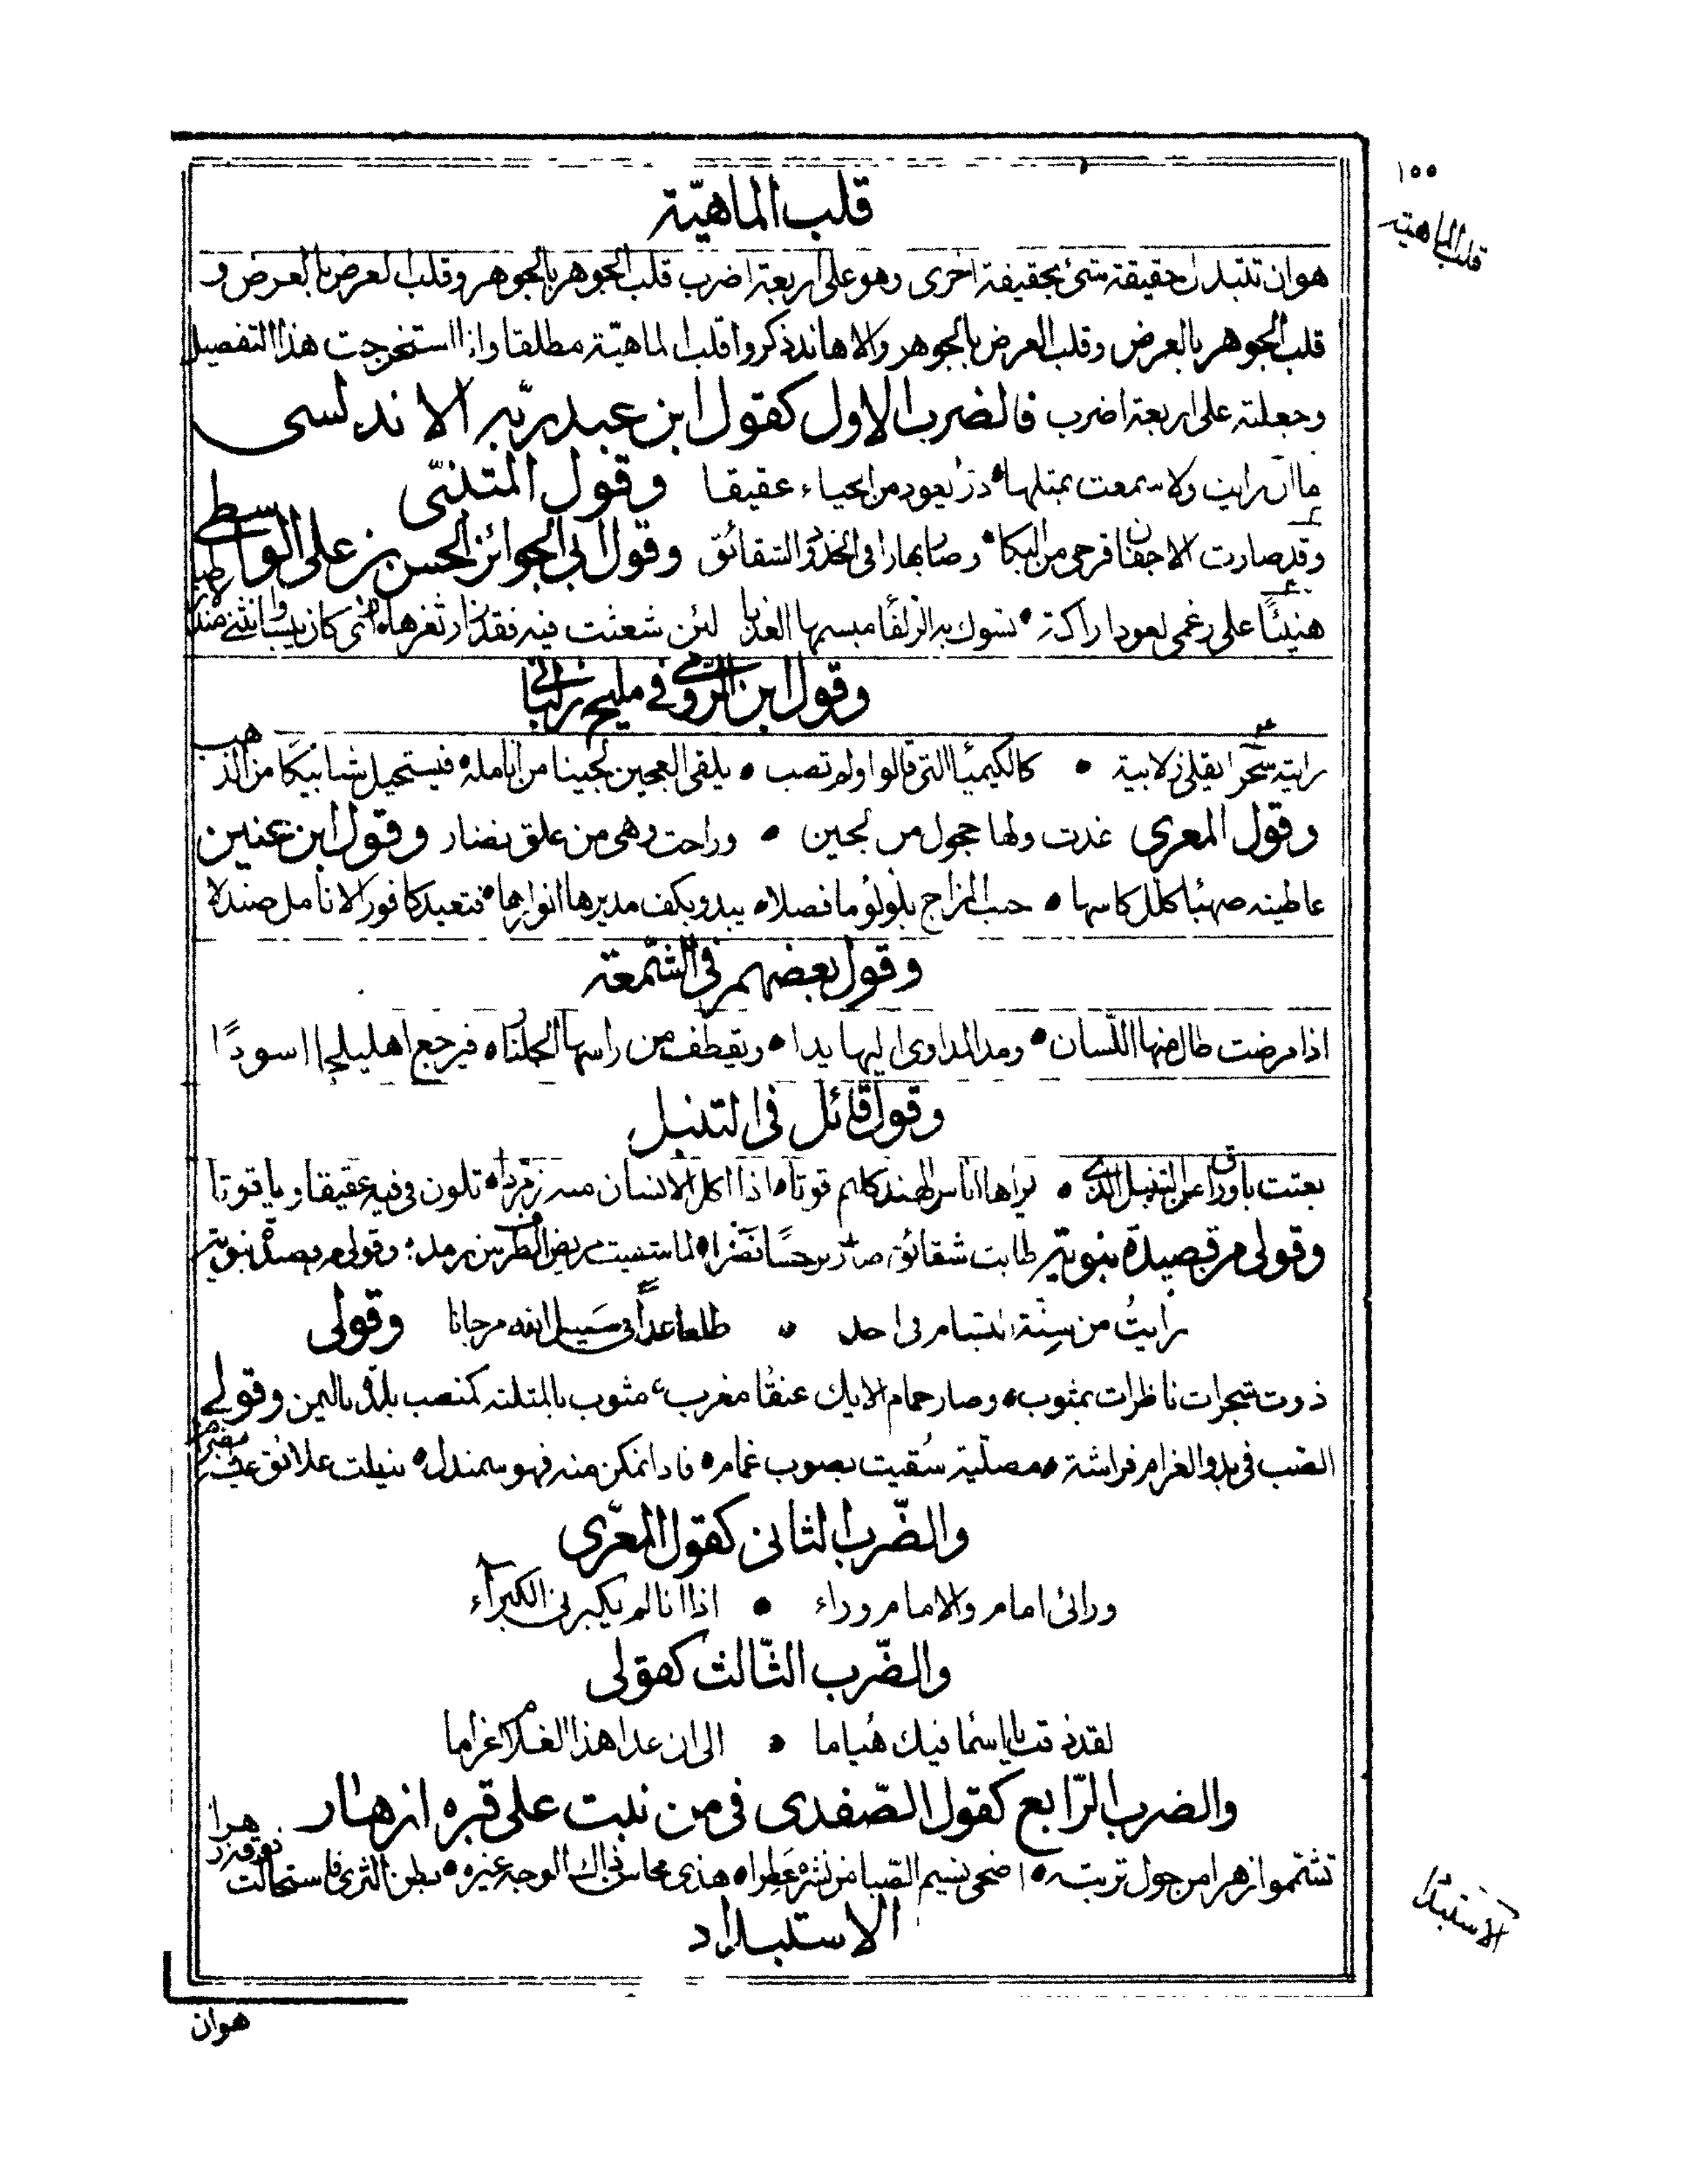 ١٥٥
قلب الماهيّة
قلب الماهية
هو ان تتبدل حقيقة شئ بحقيقة اخرى وهو على اربعة اضرب قلب الجوهر بالجوهر وقلب العرض بالعرض و
قلب الجوهر بالعرض وقلب العرض بالجوهر والاهاند ذكروا قلب الماهيّة مطلقا وانا استخرجت هذا التفصيل
وجعلته على اربعة اضرب فالضرب الاول كقول ابن عبد ربّه الاندلسى
ما ان رايت ولا سمعت بمثلها • درّا يعود من الحياء عقيقا وقول المتنبّى
وقد صارت الاجفان قرحى من البكا • وصار بهارا فى الخدود الشقائق وقول ابى الجوائز الحسن بن على الواسطى
هنيئًا على رغمى لعود اراكة • تسوك به الزلفا مبسمها العذبا لئن شعثت فيه فقد زار ثغرها •
وقول ابن الرومى فى مليح زلبانى
رايته سحرا يقلى زلابية • كالكيميا التى قالوا ولم تصب • يلقى العجين لجينا من انامله • فيستحيل شبابيكا من الذهب
وقول المعرى غدت ولها حجول من لجين • وراحت وهى من علق نضار وقول ابن عنين
عاطيته صهبا كلل كاسها • حبب المزاج بلولؤ ما فصلا • يبدو بكف مديرها انوارها • فتعيد كافور الانامل صندلا
وقول بعضهم فى الشّمعة
اذا مرضت طال منها اللّسان • ومد المداوى اليها يدا • ويقطف من راسها الجلنار • فيرجع اهليلجا اسودًا
وقول قائل فى التنبل
بعثت باوراق من التنبل الذى • يراها اناس الهند كلهم قوتا • اذا اكل الانسان منه زمردا • تلون فى فيه عقيقا وياقوتا
وقولى من قصيدة نبوية طابت شقائق صارت نرجسًا نضرا • لما شفيت مريض الطرف من رمد : وقولى من قصيدة نبوية
رايتُ من سِنّة ابتسام فى احد • طلعا غدا فى سَبيل الله مرجانا وقولى
ذوت شجرات ناظرات بمثوب • وصار حمام الايك عنقا مغرب ء مثوب بالمثلثة كمنصب بلد باليمن وقولى
الصب فى بدو الغرام فراشة • مصلّية سُقيت بصوب غمام • فاذا تمكن منه فهو سمندل •
والضّرب الثانى كقول المعّرى
ورائى امام والامام وراء • اذا انا لم يكبرنى الكبراء
والضّرب الثّالث كقولى
لقد ذقت يا اسما فيك هُياما • الى ان غدا هذا الغلام غراما
والضرب الرّابع كقول الصّفدى فى من نبت على قبره ازهار
تشتّموا زهرا من حول تربته • اضحى نسيم الصّبا من نشره عَطِرا • هذى محاسن ذاك الوجه غيره • بطن الثرى فاستحالت فوقه زهرا
الاستبداد
الاستبداد
هو ان